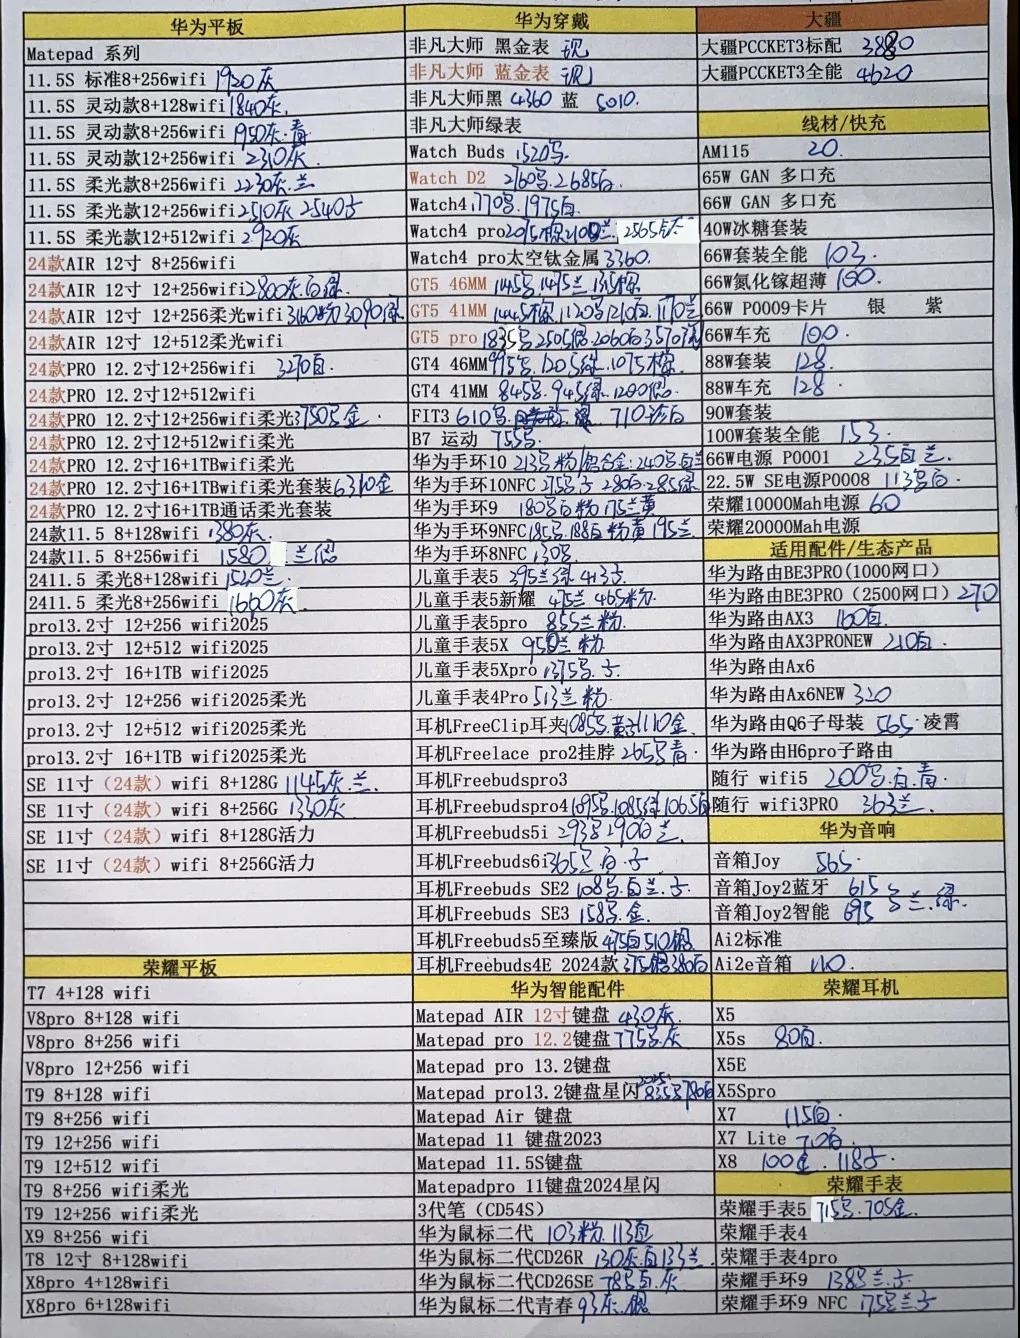 华为平板
Matepad 系列
11.5S 标准8+256wifi 1920灰
11.5S 灵动款8+128wifi 1840灰.
11.5S 灵动款8+256wifi 1950灰.青
11.5S 灵动款12+256wifi 2310灰.
11.5S 柔光款8+256wifi 2230灰.兰
11.5S 柔光款12+256wifi 2510灰 2540子
11.5S 柔光款12+512wifi 2920灰
24款AIR 12寸 8+256wifi
24款AIR 12寸 12+256wifi 2800灰.白.绿.
24款AIR 12寸 12+256柔光wifi 3160 3090绿
24款AIR 12寸 12+512柔光wifi
24款PRO 12.2寸12+256wifi 3270白.
24款PRO 12.2寸12+512wifi
24款PRO 12.2寸12+256wifi柔光3750金.
24款PRO 12.2寸12+512wifi柔光
24款PRO 12.2寸16+1TBwifi柔光
24款PRO 12.2寸16+1TBwifi柔光套装6310金
24款PRO 12.2寸16+1TB通话柔光套装
24款11.5 8+128wifi 1380灰.
24款11.5 8+256wifi 1580 兰.银
2411.5 柔光8+128wifi 1520兰.
2411.5 柔光8+256wifi 1660灰
pro13.2寸 12+256 wifi2025
pro13.2寸 12+512 wifi2025
pro13.2寸 16+1TB wifi2025
pro13.2寸 12+256 wifi2025柔光
pro13.2寸 12+512 wifi2025柔光
pro13.2寸 16+1TB wifi2025柔光
SE 11寸（24款）wifi 8+128G 1145灰.兰.
SE 11寸（24款）wifi 8+256G 1330灰
SE 11寸（24款）wifi 8+128G活力
SE 11寸（24款）wifi 8+256G活力
荣耀平板
T7 4+128 wifi
V8pro 8+128 wifi
V8pro 8+256 wifi
V8pro 12+256 wifi
T9 8+128 wifi
T9 8+256 wifi
T9 12+256 wifi
T9 12+512 wifi
T9 8+256 wifi柔光
T9 12+256 wifi柔光
X9 8+256 wifi
T8 12寸 8+128wifi
X8pro 4+128wifi
X8pro 6+128wifi
华为穿戴
非凡大师 黑金表 现
非凡大师 蓝金表 现
非凡大师黑 4360 蓝 5010.
非凡大师绿表
Watch Buds 1520号.
Watch D2 2160号.2685白.
Watch4 1770号.1975白.
Watch4 pro2015棕2100兰. 2565钛
Watch4 pro太空钛金属3360.
GT5 46MM 1145号.1475兰 1315棕
GT5 41MM 1445棕.1120号1210白.1170兰
GT5 pro 1835号2505银.2060白3570
GT4 46MM 995号.1205绿.1075棕.
GT4 41MM 845号.945绿1200银.
FIT3 610号. 710 白
B7 运动 755号.
华为手环10 213号粉/铝合金:240号白兰
华为手环10NFC 275号子 280白.285绿
华为手环9 180号白粉 175兰黄
华为手环9NFC185号.188白 粉黄 195兰
华为手环8NFC 130号
儿童手表5 395兰绿 413子.
儿童手表5新耀 475兰 465粉.
儿童手表5pro 855兰粉.
儿童手表5X 950兰 粉
儿童手表5Xpro 1375号.子
儿童手表4Pro 513兰 粉
耳机FreeClip耳夹1085号.黄子1110金.
耳机Freelace pro2挂脖 265号青.
耳机Freebudspro3
耳机Freebudspro4 1095号.1085绿1065白
耳机Freebuds5i 293号290白兰.
耳机Freebuds6i365号白.子
耳机Freebuds SE2 108号.白兰.子.
耳机Freebuds SE3 158号.金.
耳机Freebuds5至臻版 475白510银.
耳机Freebuds4E 2024款375银380白
华为智能配件
Matepad AIR 12寸键盘 430灰.
Matepad pro 12.2键盘 775号.灰
Matepad pro 13.2键盘
Matepad pro13.2键盘星闪 2025 835号780白
Matepad Air 键盘
Matepad 11 键盘2023
Matepad 11.5S键盘
Matepadpro 11键盘2024星闪
3代笔（CD54S）
华为鼠标二代 103粉.113白
华为鼠标二代CD26R 130灰.白133兰
华为鼠标二代CD26SE 78号白.灰
华为鼠标二代青春 93灰.银
大疆
大疆PCCKET3标配 3880
大疆PCCKET3全能 4620
线材/快充
AM115 20.
65W GAN 多口充
66W GAN 多口充
40W冰糖套装
66W套装全能 103.
66W氮化镓超薄 100.
66W P0009卡片 银 紫
66W车充 100.
88W套装 128.
88W车充 128.
90W套装
100W套装全能 153.
66W电源 P0001 235白兰.
22.5W SE电源P0008 113号白.
荣耀10000Mah电源 60
荣耀20000Mah电源
适用配件/生态产品
华为路由BE3PRO(1000网口)
华为路由BE3PRO（2500网口）270
华为路由AX3 160白.
华为路由AX3PRONEW 210白.
华为路由Ax6
华为路由Ax6NEW 320
华为路由Q6子母装 565.凌霄
华为路由H6pro子路由
随行 wifi5 200号.白.青.
随行 wifi3PRO 363兰.
华为音响
音箱Joy 565.
音箱Joy2蓝牙 615
音箱Joy2智能 695 号兰.绿.
Ai2标准
Ai2e音箱 110.
荣耀耳机
X5
X5s 80白.
X5E
X5Spro
X7 115白.
X7 Lite 70白.
X8 100金.118子.
荣耀手表
荣耀手表5 715号.705金.
荣耀手表4
荣耀手表4pro
荣耀手环9 138号兰.子
荣耀手环9 NFC 175号兰子